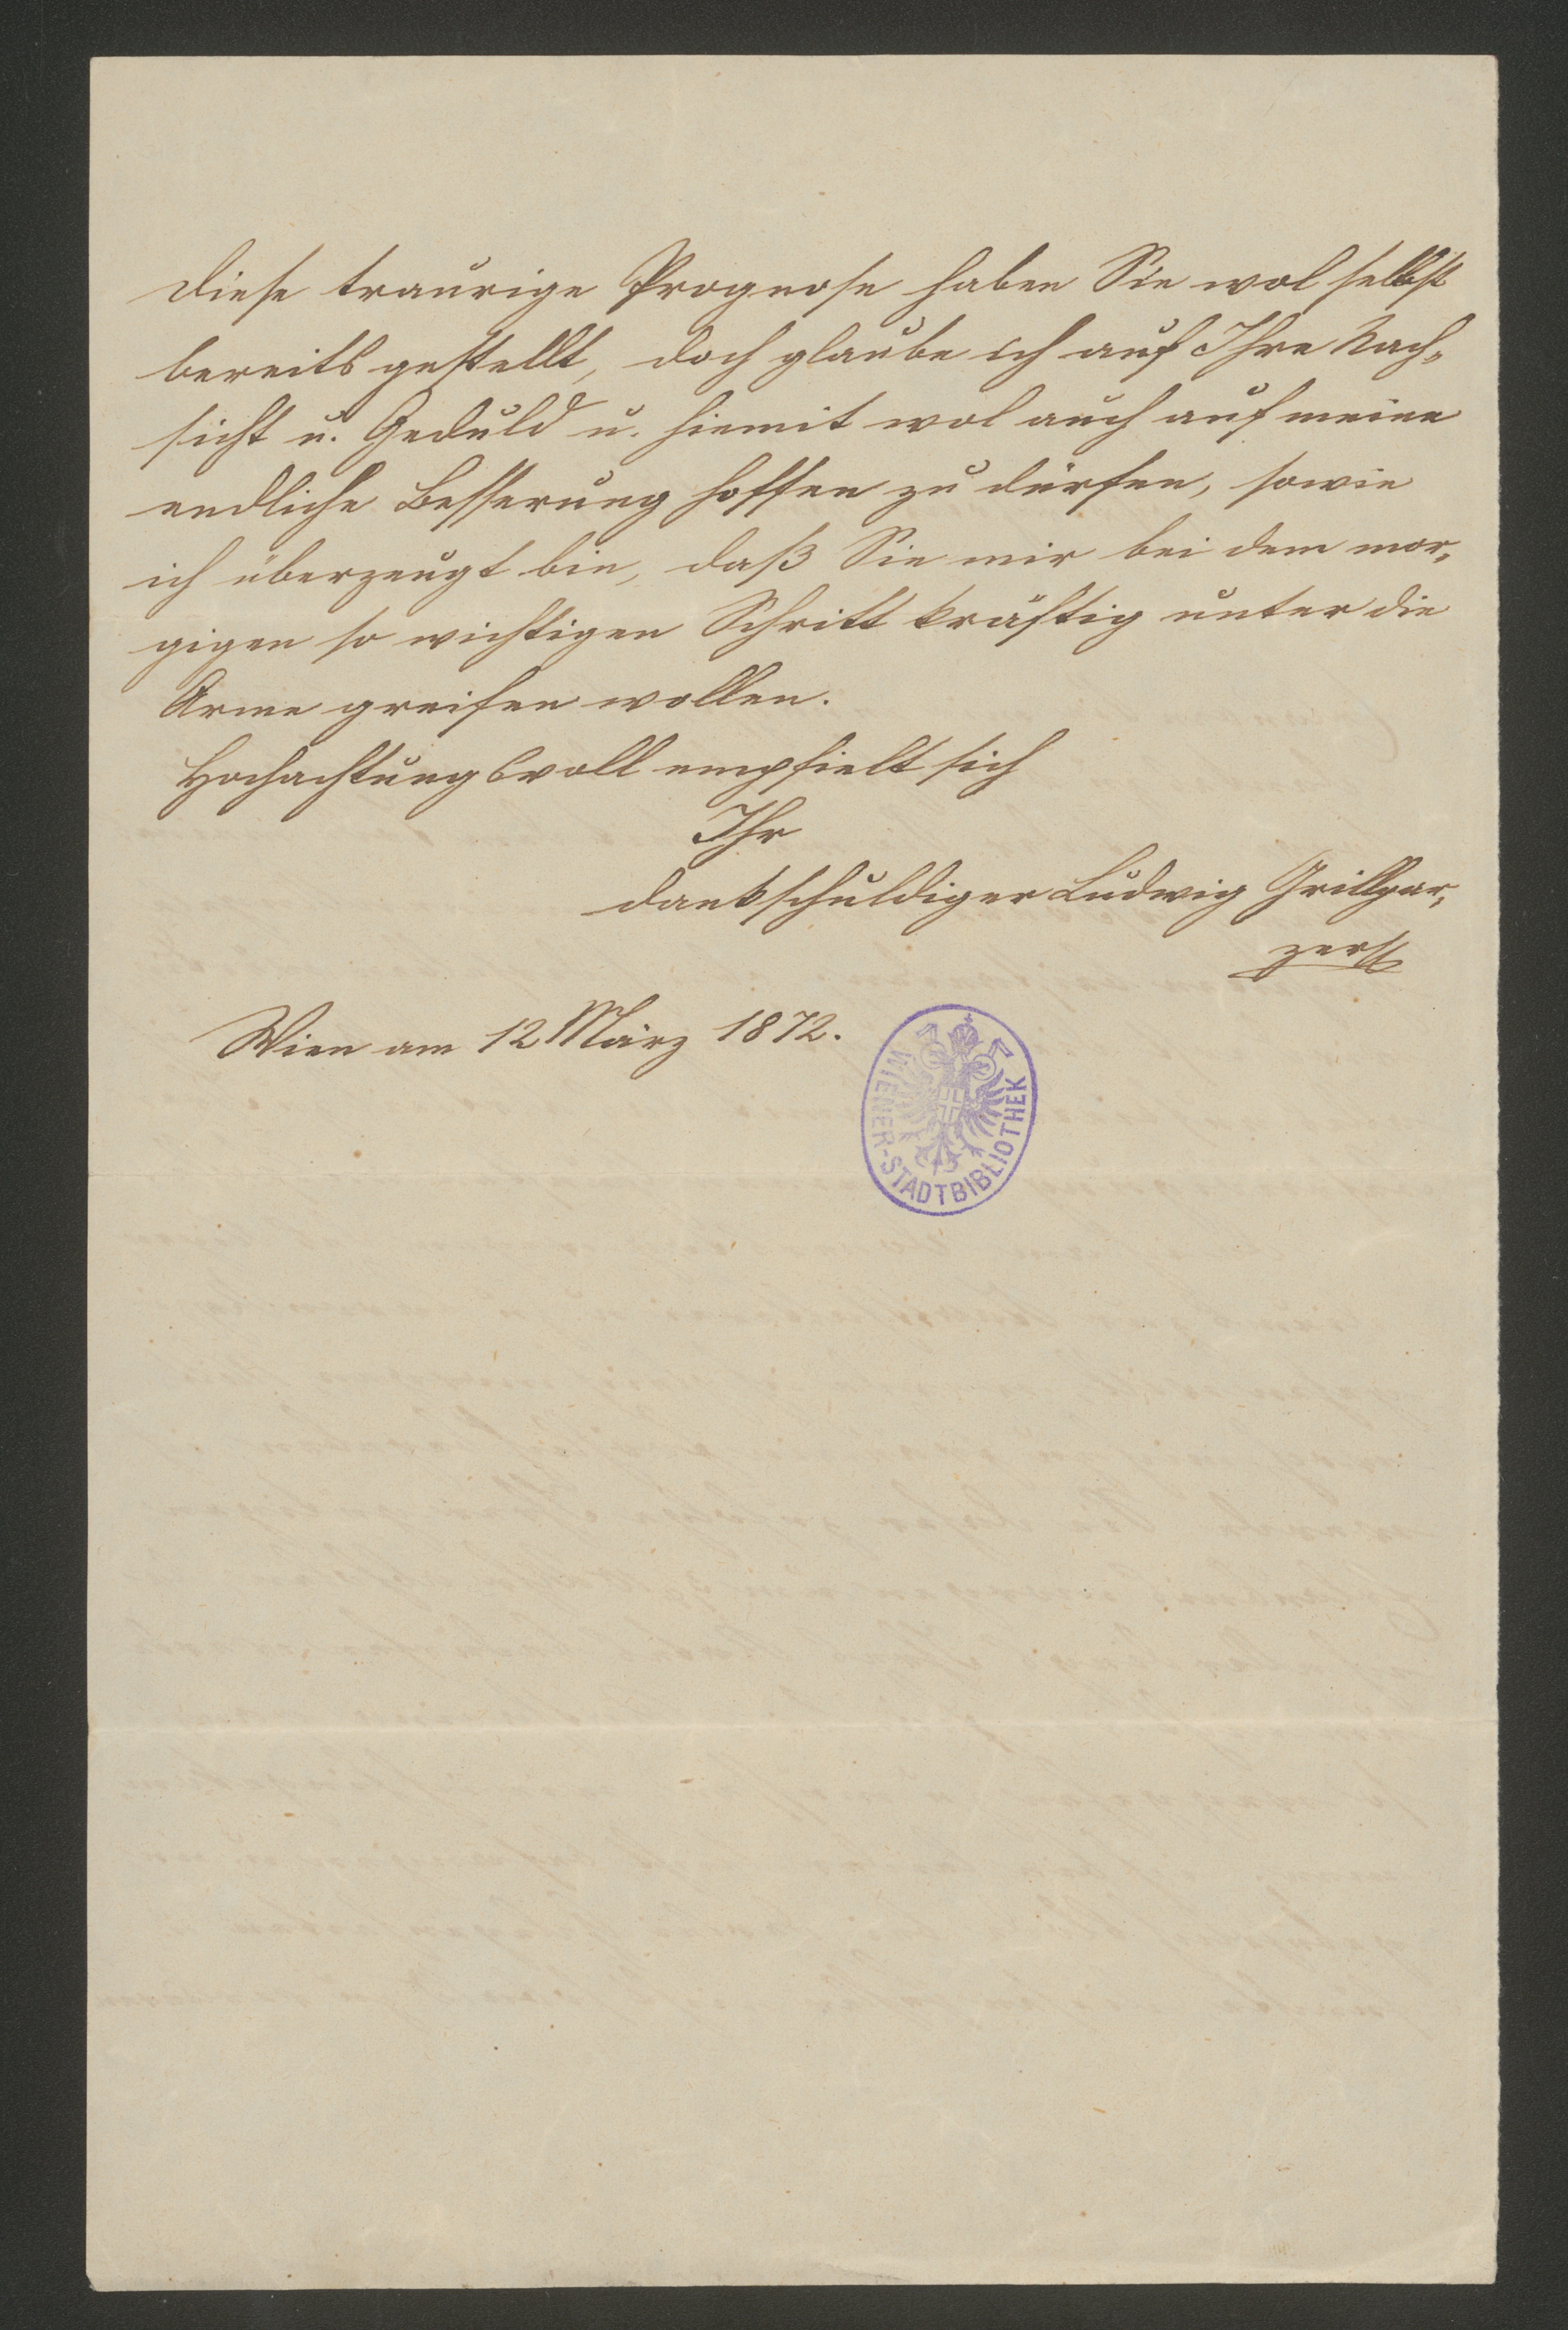 diese traurige Prognose haben Sie wol selbst
bereits gestellt, doch glaube ich auf Ihre Nach„
sicht u. Geduld u. hiemit wol auch auf meine
endliche Besserung hoffen zu dürfen, sowie
ich überzeugt bin, daß Sie mir bei dem mor„
gigen so wichtigen Schritt kräftig unter die
Arme greifen wollen.
Hochachtungsvoll empfielt sich
Ihr
dankschuldiger Ludwig Grillpar„
zer
Wien am 12 März 1872.
WIENER-STADTBIBLIOTHEK